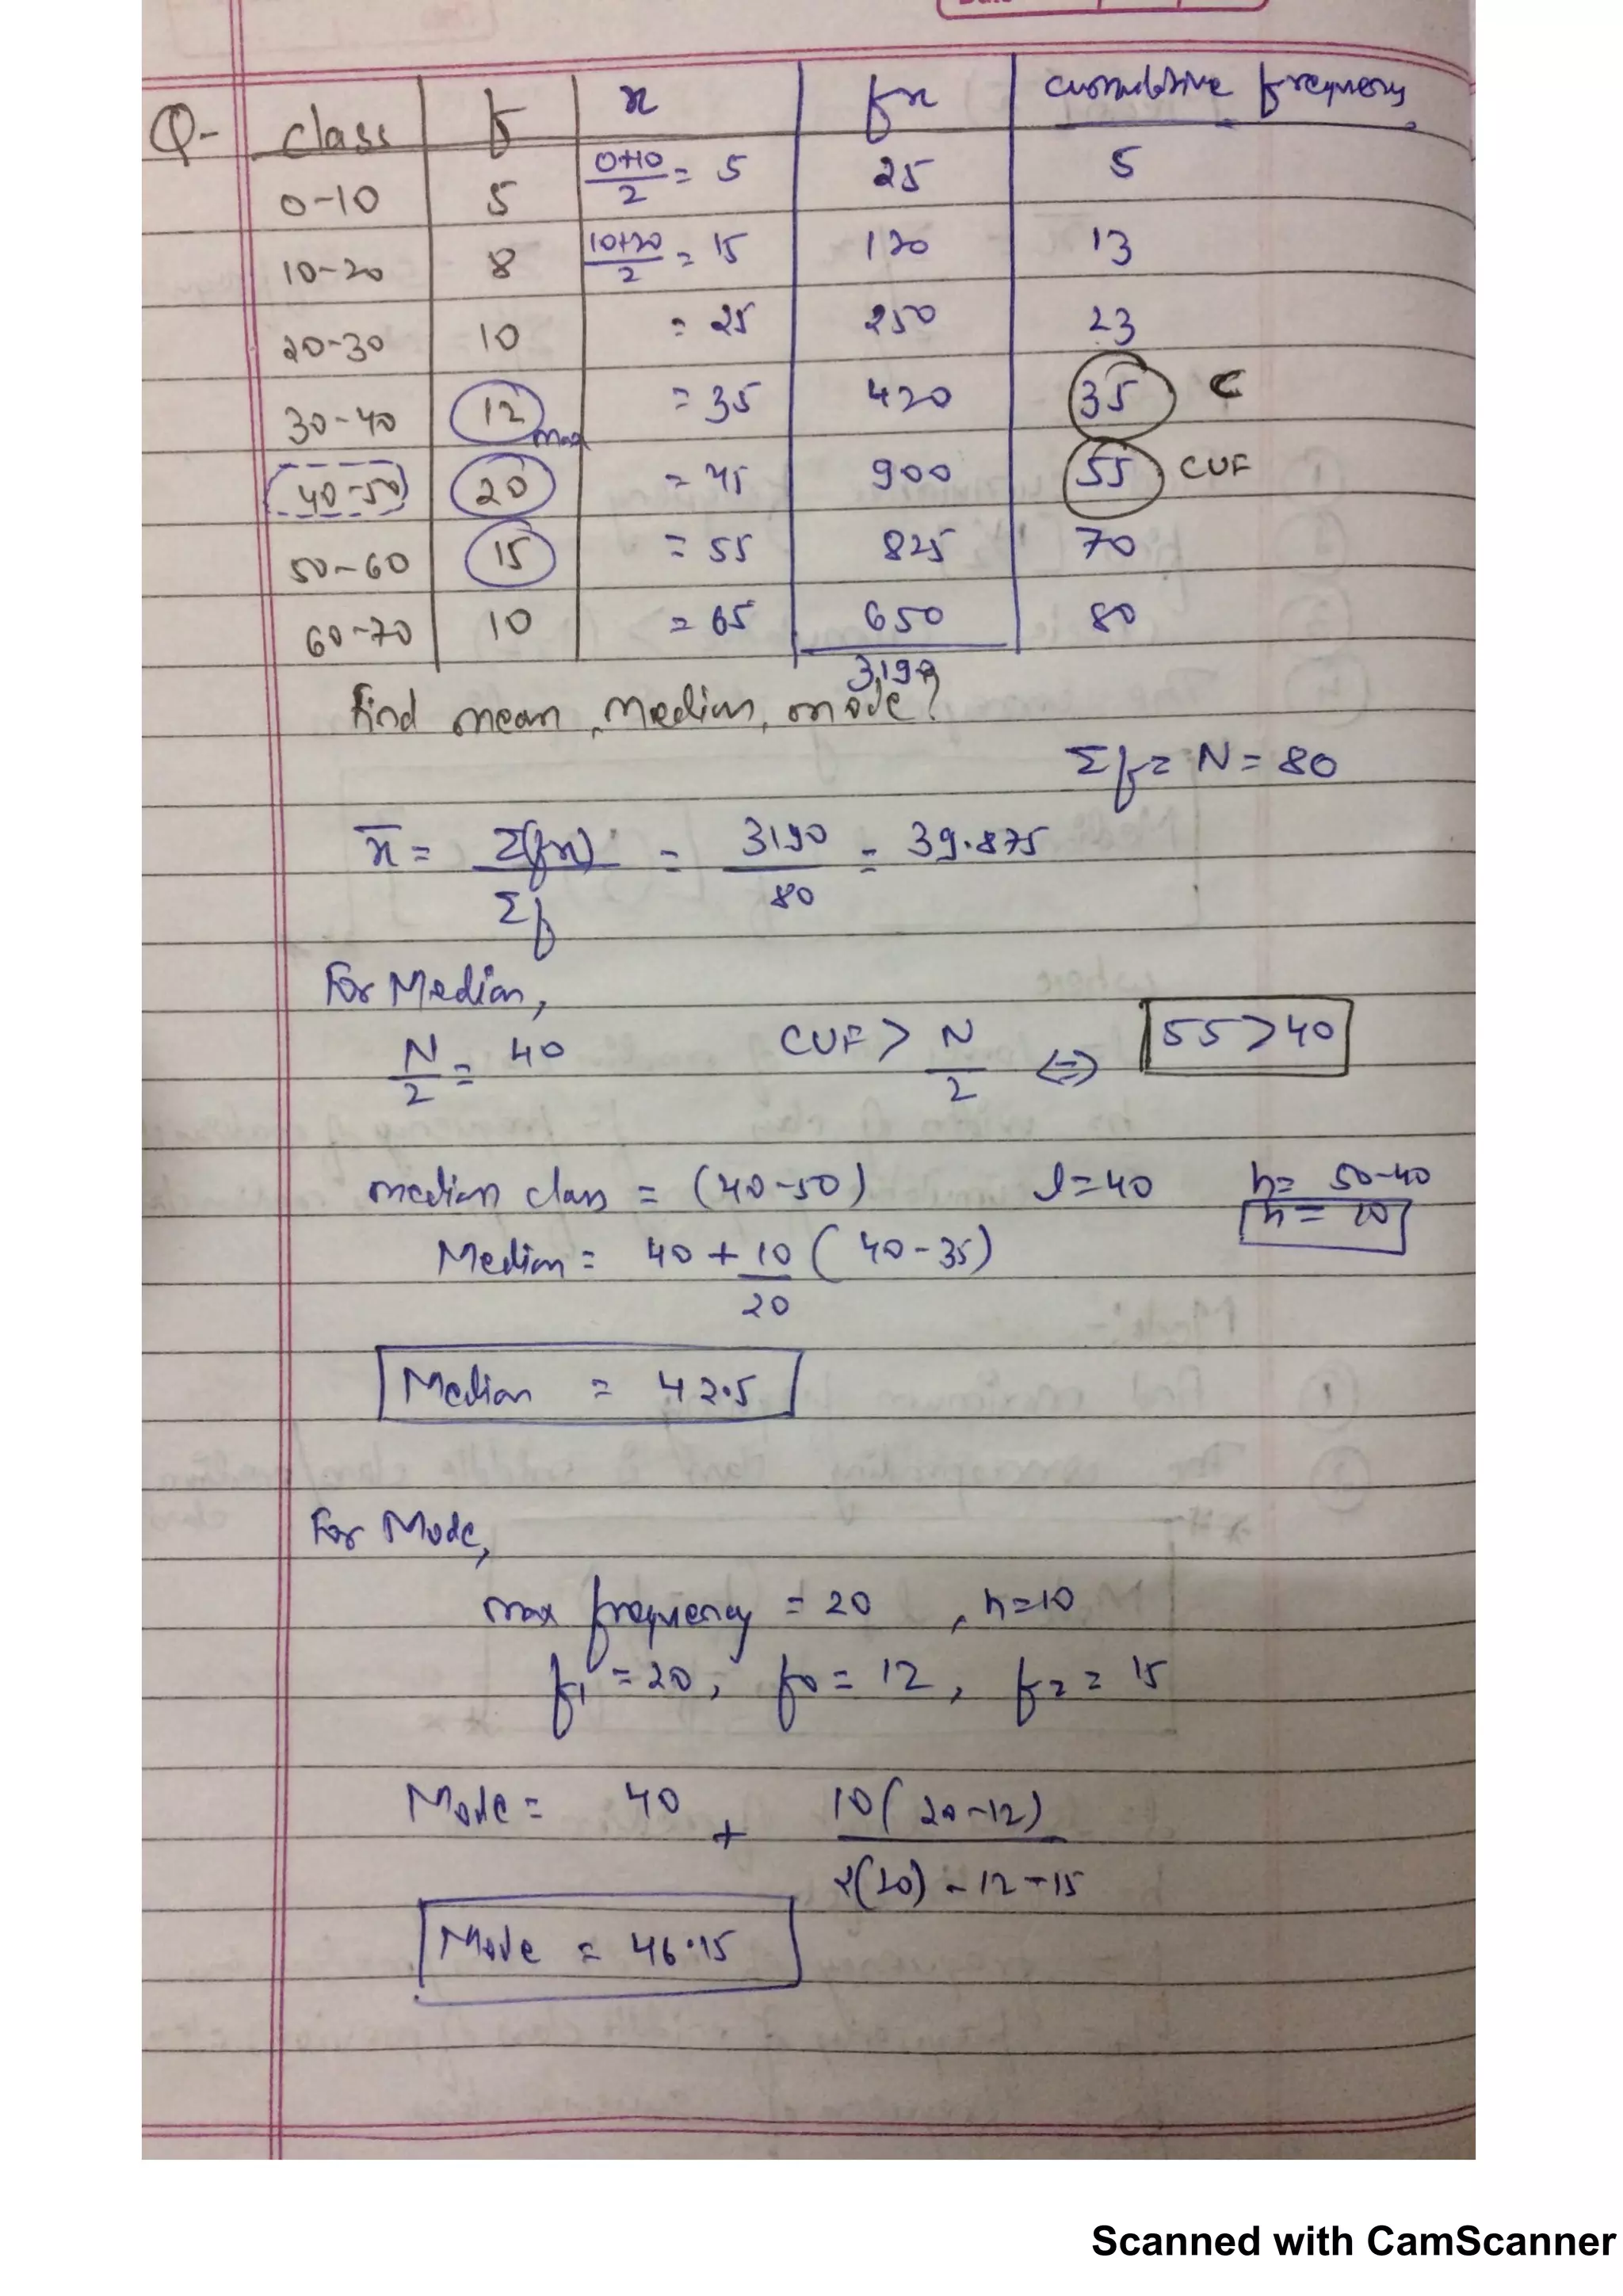 Q- class f x fx cumulative frequency
0-10 5 0+10/2 = 5 25 5
10-20 8 10+20/2 = 15 120 13
20-30 10 = 25 250 23
30-40 12 = 35 420 35 C
max
40-50 20 = 45 900 55 CUF
50-60 15 = 55 825 70
60-70 10 = 65 650 80
3190
Find mean, Median, mode?
Σf = N = 80
x̄ = Σ(fx)/Σf = 3190/80 = 39.875
For Median,
N/2 = 40 CUF > N/2 ⇔ 55 > 40
median class = (40-50) l = 40 h = 50-40
h = 10
Median = 40 + 10/20 (40-35)
Median = 42.5
For Mode,
max frequency = 20, h=10
f1 = 20, f0 = 12, f2 = 15
Mode = 40 + 10(20-12)/2(20)-12-15
Mode = 46.15
Scanned with CamScanner